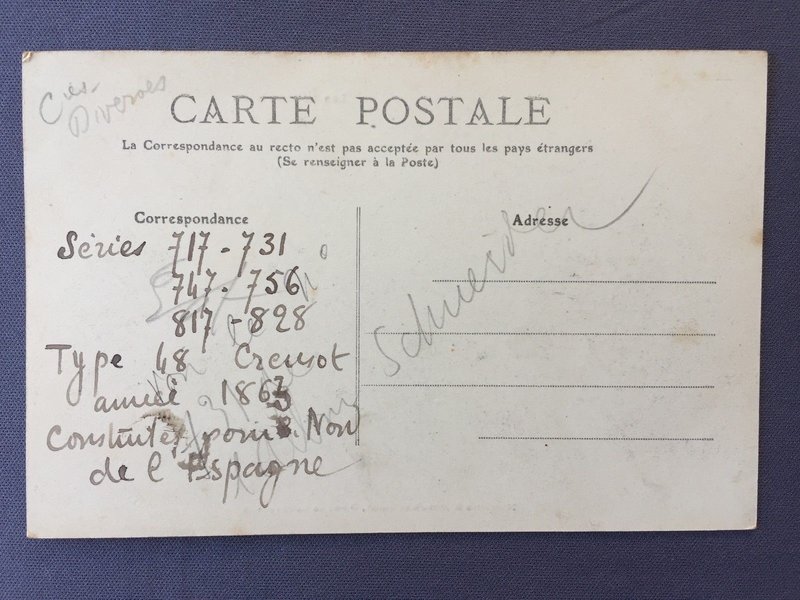 Cies
Diverses
CARTE POSTALE
La Correspondance au recto n'est pas acceptée par tous les pays étrangers
(Se renseigner à la Poste)
Correspondance
Adresse
Séries 717-731
747-756
817-828
Type 48 Creusot
année 1863
Construites pour le Nord
de l'Espagne
Schneider